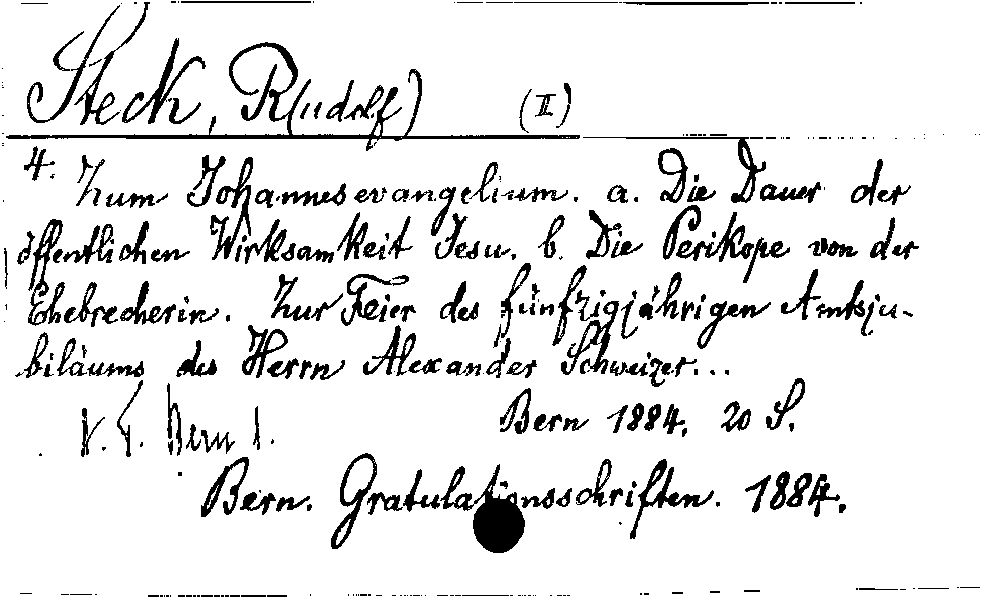 Steck, R(udolf) (II)
4. Zum Johannesevangelium. a. Die Dauer der
öffentlichen Wirksamkeit Jesu. b. Die Perikope von der
Ehebrecherin. Zur Feier des fünfzigjährigen Amtsju-
biläums des Herrn Alexander Schweizer...
Bern 1884. 20 S.
Bern 1.
Bern. Gratulationsschriften. 1884.